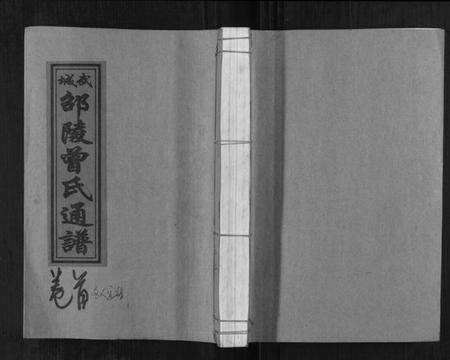 武城
邵陵曾氏通譜
卷首